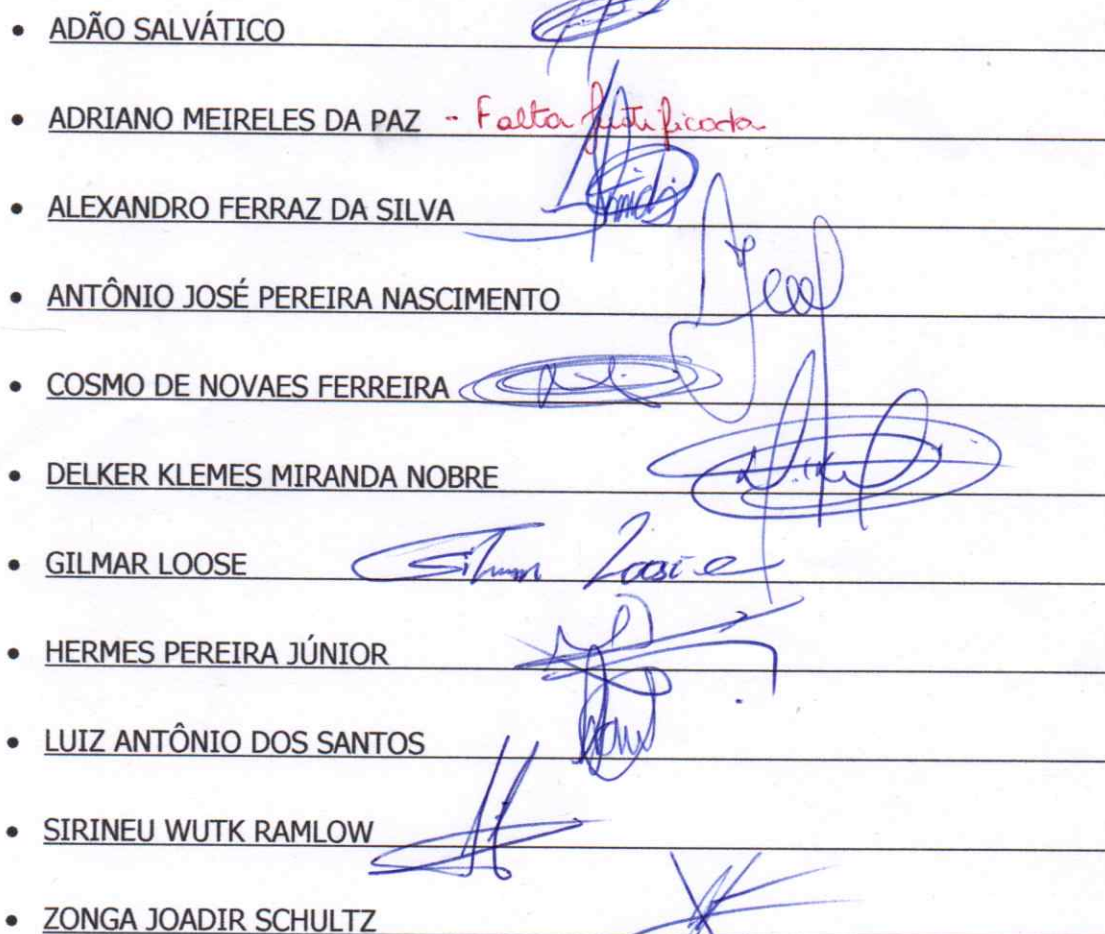 • ADÃO SALVÁTICO
• ADRIANO MEIRELES DA PAZ - Falta justificada
• ALEXANDRO FERRAZ DA SILVA
• ANTÔNIO JOSÉ PEREIRA NASCIMENTO
• COSMO DE NOVAES FERREIRA
• DELKER KLEMES MIRANDA NOBRE
• GILMAR LOOSE Gilmar Loose
• HERMES PEREIRA JÚNIOR
• LUIZ ANTÔNIO DOS SANTOS
• SIRINEU WUTK RAMLOW
• ZONGA JOADIR SCHULTZ